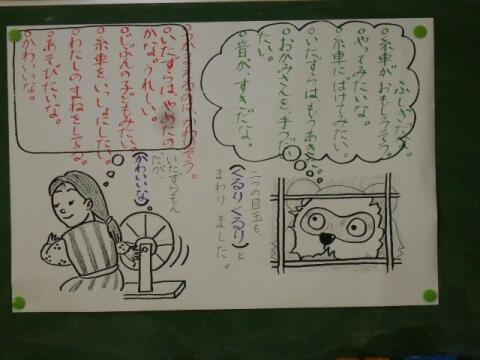 ふしぎだな。
○糸車がおもしろそう。
○やってみたいな。
○糸車にばけてみたい。
○いたずらはもうあきた。
○おかみさんを、手つだい
たい。
○音が、すきだな。
二つの目玉も、
(くるりくるり)と
まわりました。
いたずらもん
だが、
かわいいな
○いたずらはやめたの
かな。うれしい。
○じぶんの子どもみたい。
○糸車をいっしょにしたい。
○わたしのまねをしてる。
○あそびたいな。
○かわいいな。